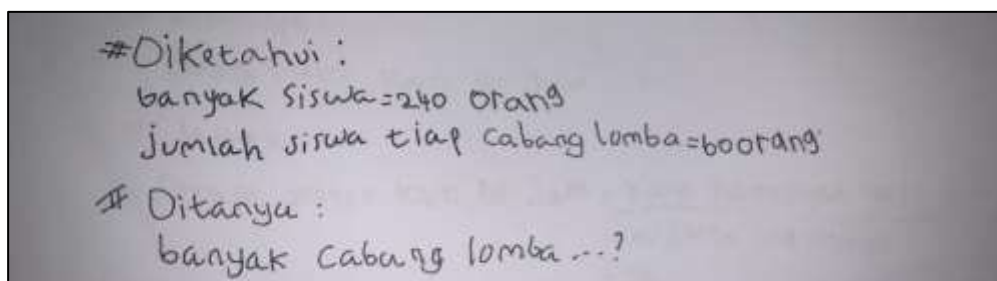 #Diketahui :
banyak siswa=240 orang
jumlah siswa tiap cabang lomba=60orang
# Ditanya :
banyak cabang lomba...?